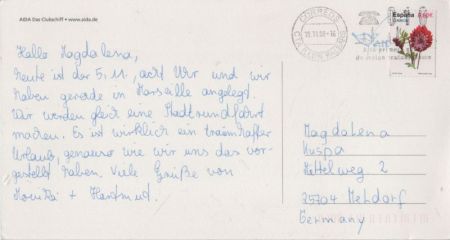 AIDA Das Clubschiff • www.aida.de
CORREOS
España
Hallo Magdalena,
heute ist der 5.11., acht Uhr und wir
haben gerade in Marseille angelegt.
Wir werden gleich eine Stadtrundfahrt
machen. Es ist wirklich ein traumhafter
Urlaub, genauso wie wir uns das vor-
gestellt haben. Viele Grüße von
Monika + Hartmut.
Magdalena
Kuspa
Mittelweg 2
25704 Meldorf
Germany